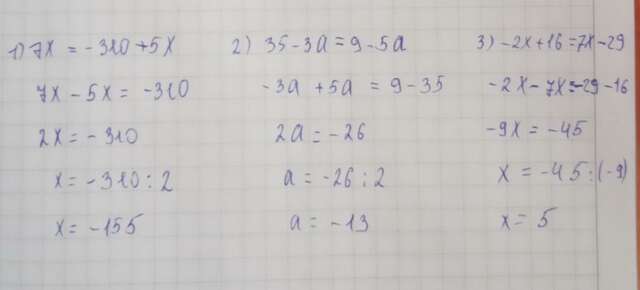 1) 7x = -310 + 5x
7x - 5x = -310
2x = -310
x = -310 : 2
x = -155
2) 35 - 3a = 9 - 5a
-3a + 5a = 9 - 35
2a = -26
a = -26 : 2
a = -13
3) -2x + 16 = 7x - 29
-2x - 7x = -29 - 16
-9x = -45
x = -45 : (-9)
x = 5